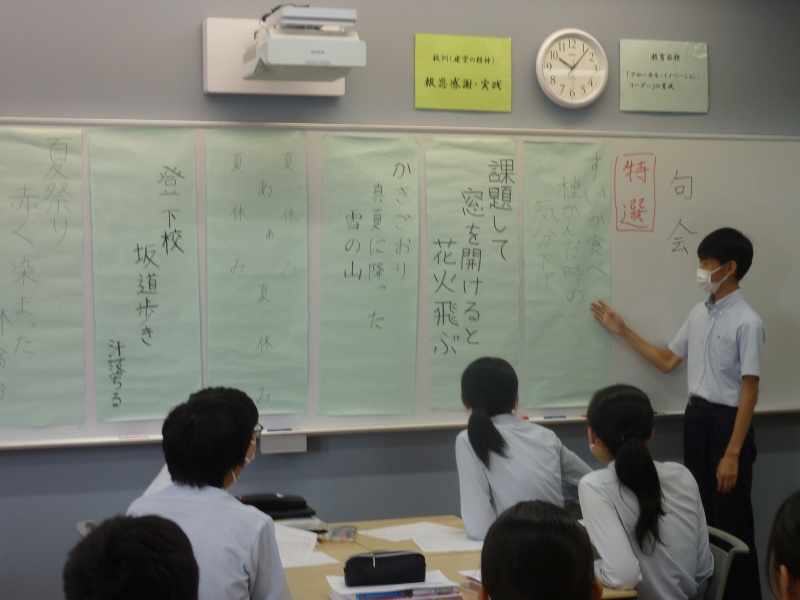 校訓(建学の精神)
報恩感謝・実践
教育目標
「グローカル・イノベーション・
リーダー」の育成
EPSON
句会
特選
すいか食べ
種かんだ時の
気分下げ
課題して
窓を開けると
花火飛ぶ
かきごおり
真夏に降った
雪の山
夏休み
あぁ夏休み
夏休み
登下校
坂道歩き
汗落ちる
夏祭り
赤く染まった